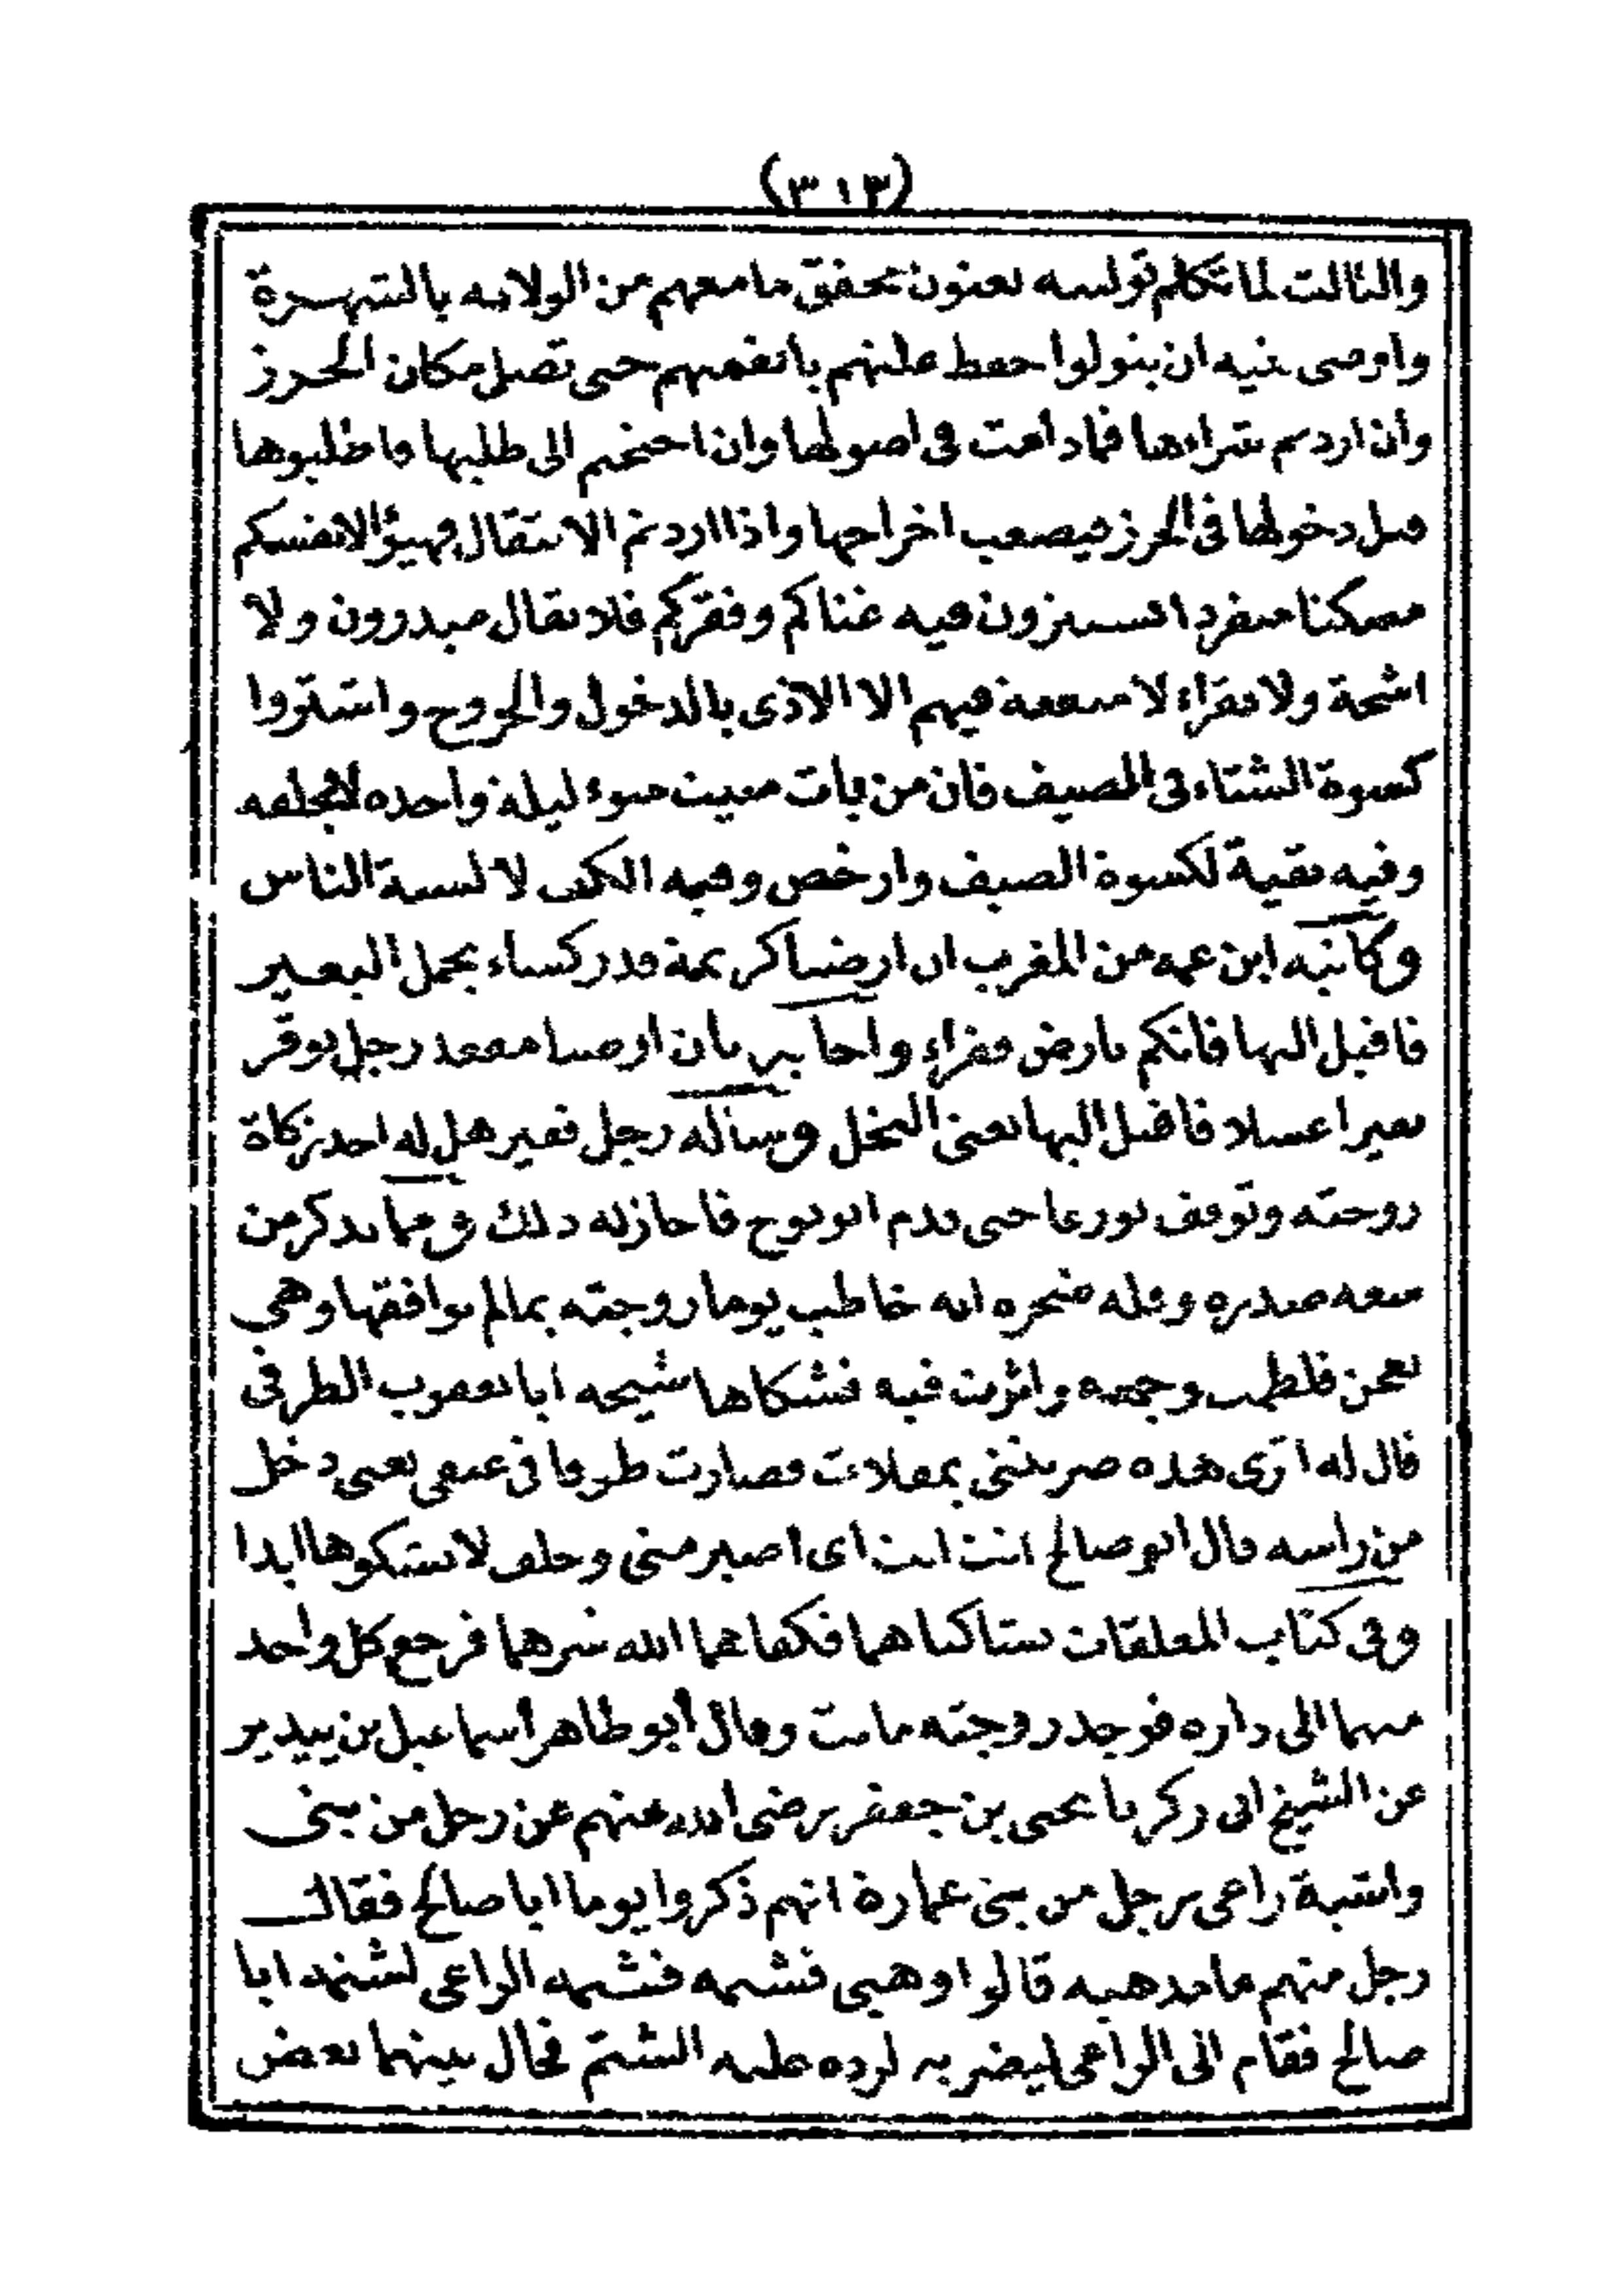 (٣١٣)
والثالث لما تكلم توليته يعنون تحقق ما معهم من الولاية بالشهرة
واوصى بنيه ان يتولوا حفظ غلتهم بانفسهم حتى تصل مكان الحرز
وان اردتم شراءها فما دامت في اصولها وان احتجتم الى طلبها فاطلبوها
قبل دخولها في الحرز فيصعب اخراجها واذا اردتم الانتقال فهيؤا لانفسكم
مسكنا منفردا تستترون فيه غناكم وفقركم فلا يقال مبذرون ولا
اشحة ولا فقراء لا منفعة فيهم الا الاذى بالدخول والخروج واشتروا
كسوة الشتاء في المصيف فان من بات مبيت سوء ليلة واحدة لا تخلفه
وفيه بقية لكسوة الصيف وارخص وفيه لا لسبة الناس
وكاتبه ابن عمه من المغرب ان ارضنا كريمة قدر كساء بحمل البعير
فاقبل اليها فانكم بارض فقراء واجابه بان ارضنا مقعد رجل يوقر
بعيرا عسلا فاقبل اليها يعني النخل وساله رجل فقير هل له اخذ زكاة
زوجته وتوقف تورعا حتى قدم ابو نوح فاجاز له ذلك وفيما يذكر من
سعة صدره وقلة ضجره انه خاطب يوما زوجته بما لم يوافقها وهي
تعجن فلطمت وجهه واثرت فيه فشكاها شيخه ابا يعقوب الطرفي
قال له اترى هذه ضربتني بمقلات فصارت طوقا في عنقي يعني دخل
من راسه قال ابو صالح انت انت اي اصبر مني وحلف لا يشكوها ابدا
وفي كتاب المعلقات تشاكيا هما فكفاهما الله شرهما فرجع كل واحد
منهما الى داره فوجد زوجته ماتت وقال أبو طاهر أسماعيل بن ييدير
عن الشيخ ابي زكريا يحيى بن جعفر رضي الله عنهم عن رجل من بني
واشبة راعي رجل من بني عمارة انهم ذكروا يوما ابا صالح فقال
رجل منهم ما مذهبه قالوا وهبي فشتمه فشتمه الراعي لشتمه ابا
صالح فقام الى الراعي ليضربه لرده عليه الشتم فحال بينهما بعض